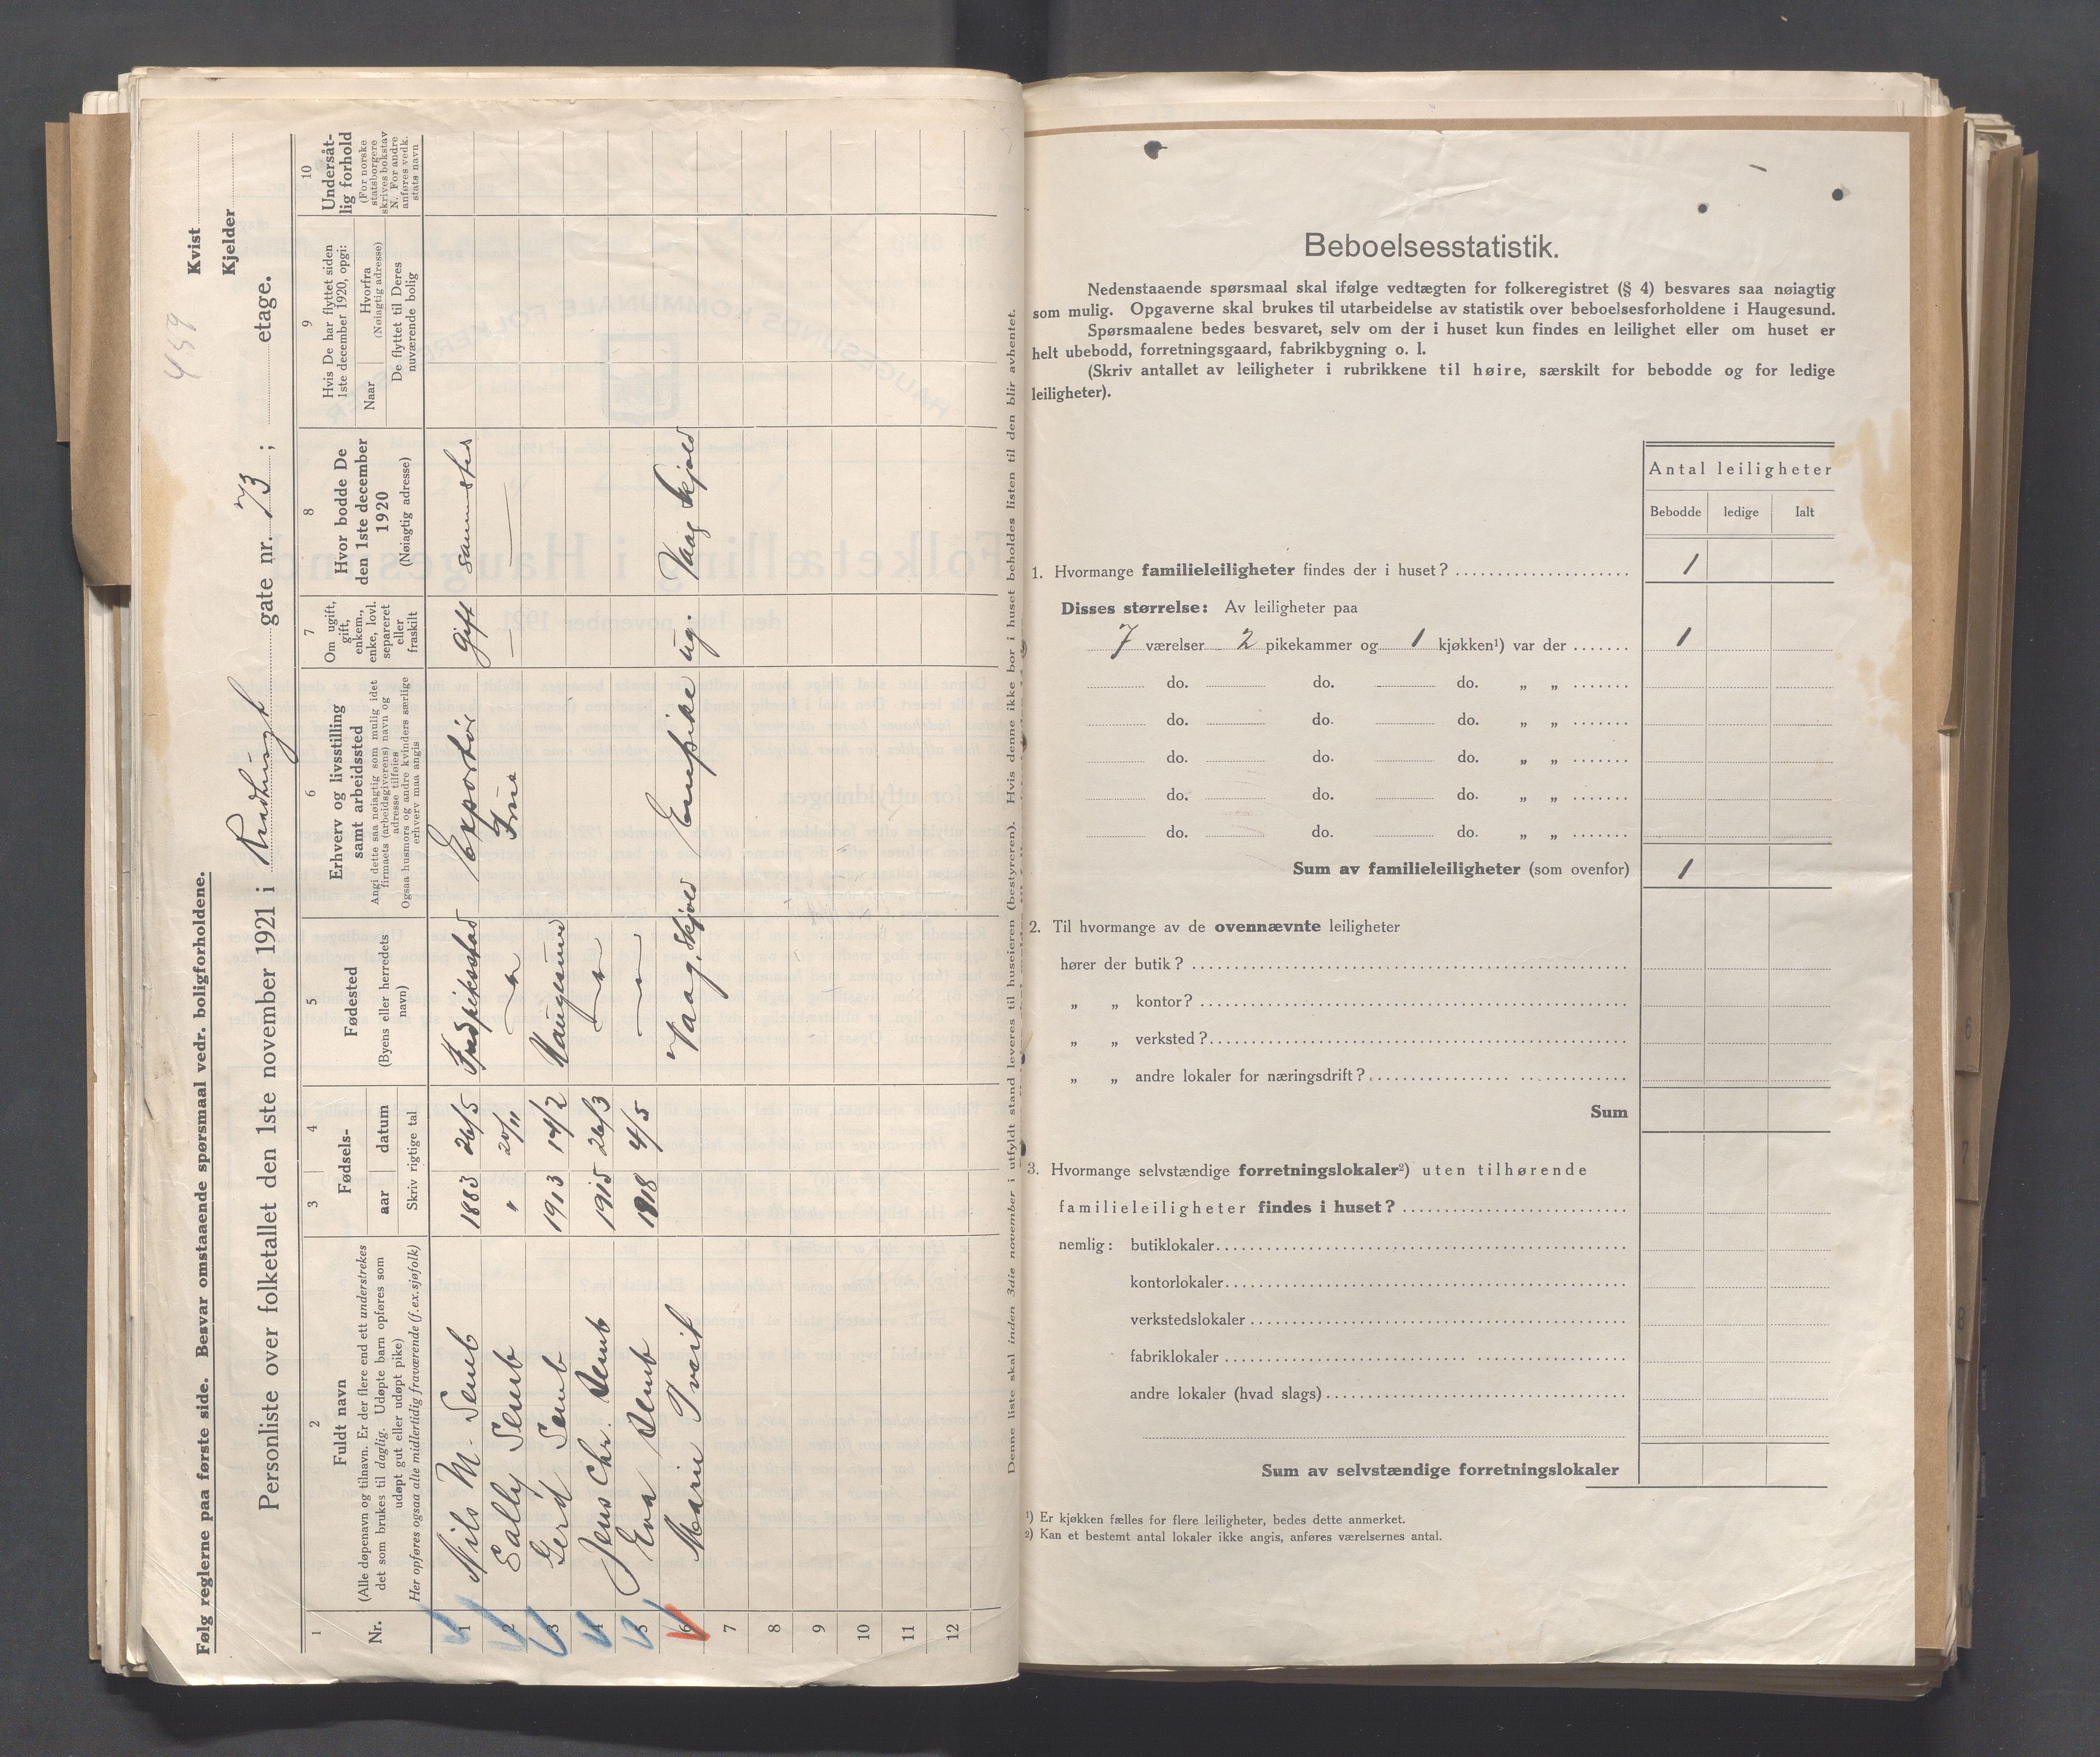 459
Følg reglerne paa første side. Besvar omstaaende spørsmaal vedr. boligforholdene.
Kvist
Kjelder
Personliste over folketallet den 1ste november 1921 i gate nr. 73 ; etage.
1
Nr.
2
Fuldt navn
(Alle døpenavn og tilnavn. Er der flere end ett understrekes
det som brukes til daglig. Udøpte barn opføres som
udøpt gut eller udøpt pike)
Her opføres ogsaa alle midlertidig fraværende (f.ex.sjøfolk)
3 4
Fødsels-
aar datum
Skriv rigtige tal
5
Fødested
(Byens eller herredets
navn)
6
Erhverv og livsstilling
samt arbeidssted
Angi dette saa nøiagtig som mulig idet
firmaets (arbeidsgiverens) navn og
adresse tilføies
Ogsaa husmors og andre kvinders særlige
erhverv maa angis
7
Om ugift,
gift,
enkem.,
enke, lovl.
separeret
eller
fraskilt
8
Hvor bodde De
den 1ste december
1920
(Nøiagtig adresse)
9
Hvis De har flyttet siden
1ste december 1920, opgi:
Naar
Hvorfra
(Nøiagtig adresse)
De flyttet til Deres
nuværende bolig
10
Undersåt-
lig forhold
(For norske
statsborgere
skrives bokstav
N. For andre
anføres vedk.
stats navn
1 Nils M. Semb 1883 26/5 Fredrikstad Exportør Gift sammested
2 Sally Semb " 20/11 — " — Frue — —
3 Gerd Semb 1913 14/2 Haugesund
4 Jens Chr. Semb 1915 26/3 — " —
5 Eva Semb 1918 4/5 —
6 Marie Tveit Vaag, Skjold Enepike ug. Vaag Skjold
7
8
9
10
11
12
Denne liste skal inden 3die november i utfyldt stand leveres til huseieren (bestyreren). Hvis denne ikke bor i huset beholdes listen til den blir avhentet.
Beboelsesstatistik.
Nedenstaaende spørsmaal skal ifølge vedtægten for folkeregistret (§ 4) besvares saa nøiagtig
som mulig. Opgaverne skal brukes til utarbeidelse av statistik over beboelsesforholdene i Haugesund.
Spørsmaalene bedes besvaret, selv om der i huset kun findes en leilighet eller om huset er
helt ubebodd, forretningsgaard, fabrikbygning o. l.
(Skriv antallet av leiligheter i rubrikkene til høire, særskilt for bebodde og for ledige
leiligheter).
Antal leiligheter
Bebodde ledige Ialt
1. Hvormange familieleiligheter findes der i huset? 1
Disses størrelse: Av leiligheter paa
7 værelser 2 pikekammer og 1 kjøkken¹) var der 1
do. do. do. „ „
do. do. do. „ „
do. do. do. „ „
do. do. do. „ „
do. do. do. „ „
Sum av familieleiligheter (som ovenfor) 1
2. Til hvormange av de ovennævnte leiligheter
hører der butik?
„ „ kontor?
„ „ verksted?
„ „ andre lokaler for næringsdrift?
Sum
3. Hvormange selvstændige forretningslokaler²) uten tilhørende
familieleiligheter findes i huset?
nemlig: butiklokaler
kontorlokaler
verkstedslokaler
fabriklokaler
andre lokaler (hvad slags)
Sum av selvstændige forretningslokaler
¹) Er kjøkken fælles for flere leiligheter, bedes dette anmerket.
²) Kan et bestemt antal lokaler ikke angis, anføres værelsernes antal.
6
7
8
10